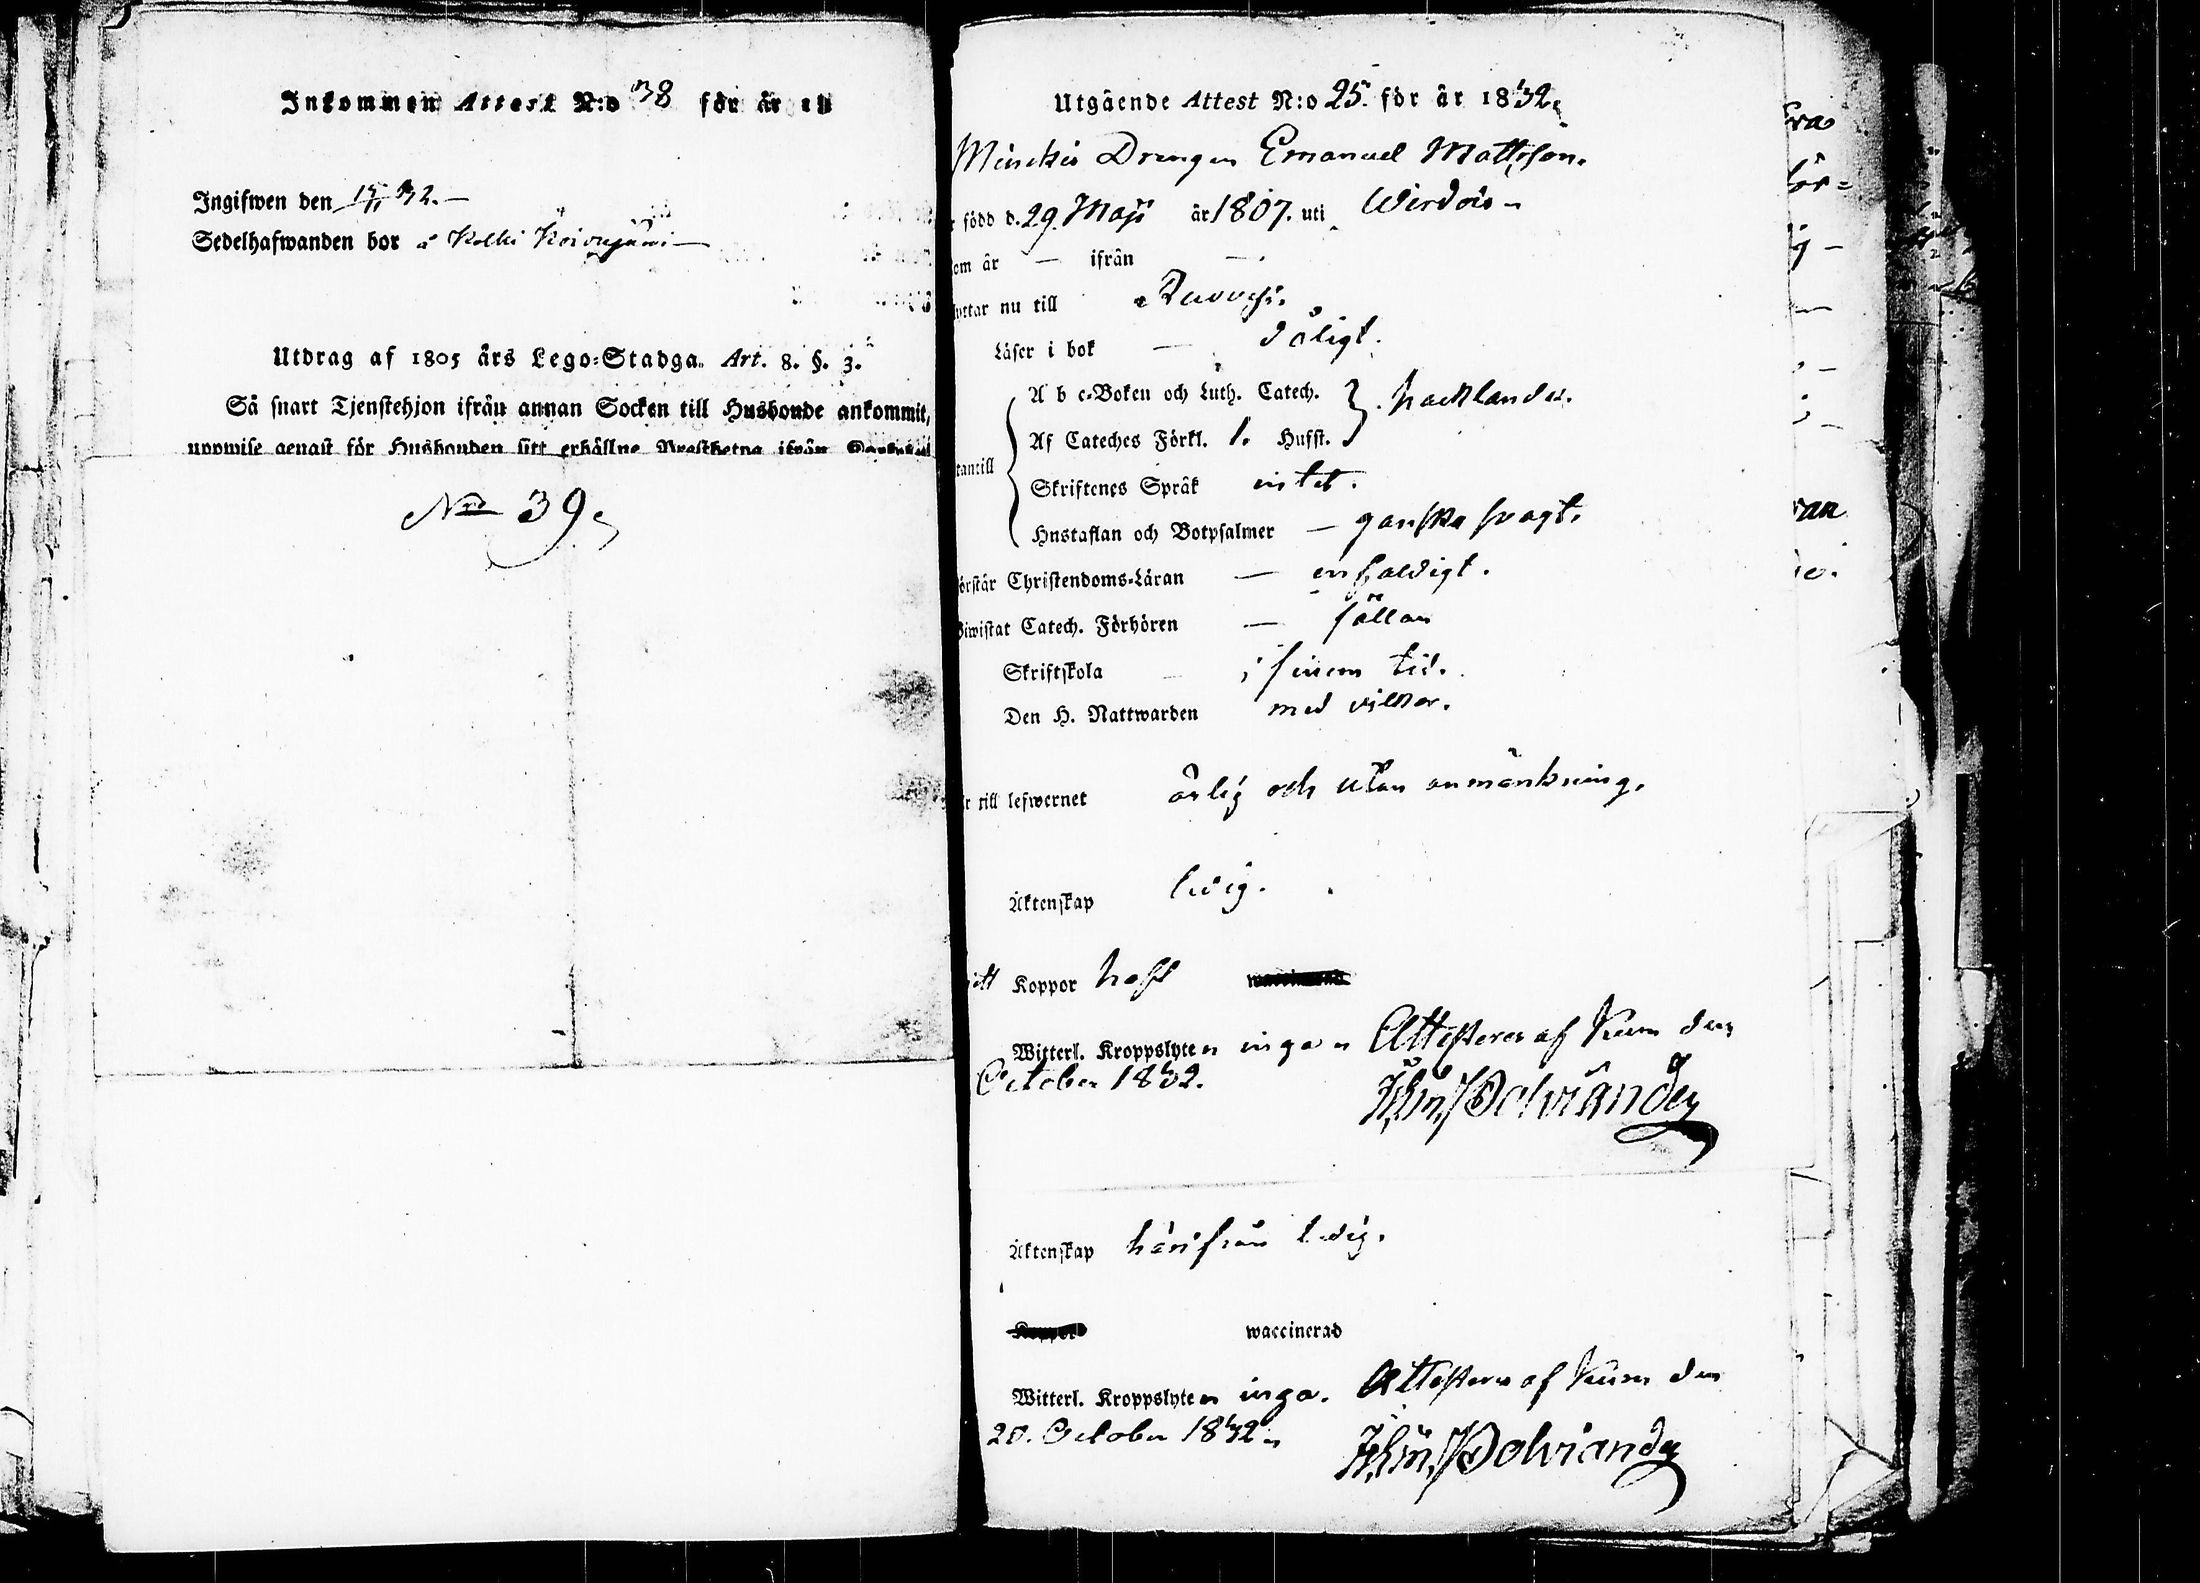 Inkommen Attest N:o 38 för år 18
Ingifwen den 15/11 32. —
Sedelhafwanden bor å Kolki Koivujärvi —
Utdrag af 1805 års Lego-Stadga. Art. 8. §. 3.
Så snart Tjenstehjon ifrån annan Socken till Husbonde ankommit,
uppwise genast för Husbonden sitt erhållne Prestbetyg ifrån
Nro 39.
Utgående Attest N:o 25. för år 1832.
Drengen Emanuel Mattsson.
född d. 29. Maji år 1807. uti Wirdois
om år — ifrån —
nu till Ruovesi.
Läser i bok — dåligt.
A b c-Boken och Luth. Catech. } hacklande.
Af Cateches Förkl. 1. Husst.
tantill
Skriftenes Språk intet.
Hustaflan och Botpsalmer — ganska svagt.
örstår Christendoms-Läran — enfaldigt.
iwistat Catech. Förhören — sällan
Skriftskola — i sinom tid.
Den H. Nattwarden med vilkor.
till lefwernet ärlig och utan anmärkning.
Äktenskap ledig.
Koppor haft
Witterl. Kroppslyten inga Attesteras af Kuru den
October 1832. Johan Polviander
Äktenskap härifrån ledig.
waccinerad
Witterl. Kroppslyten inga. Attesteras af Kuru den
20. October 1832. Johan Polviander